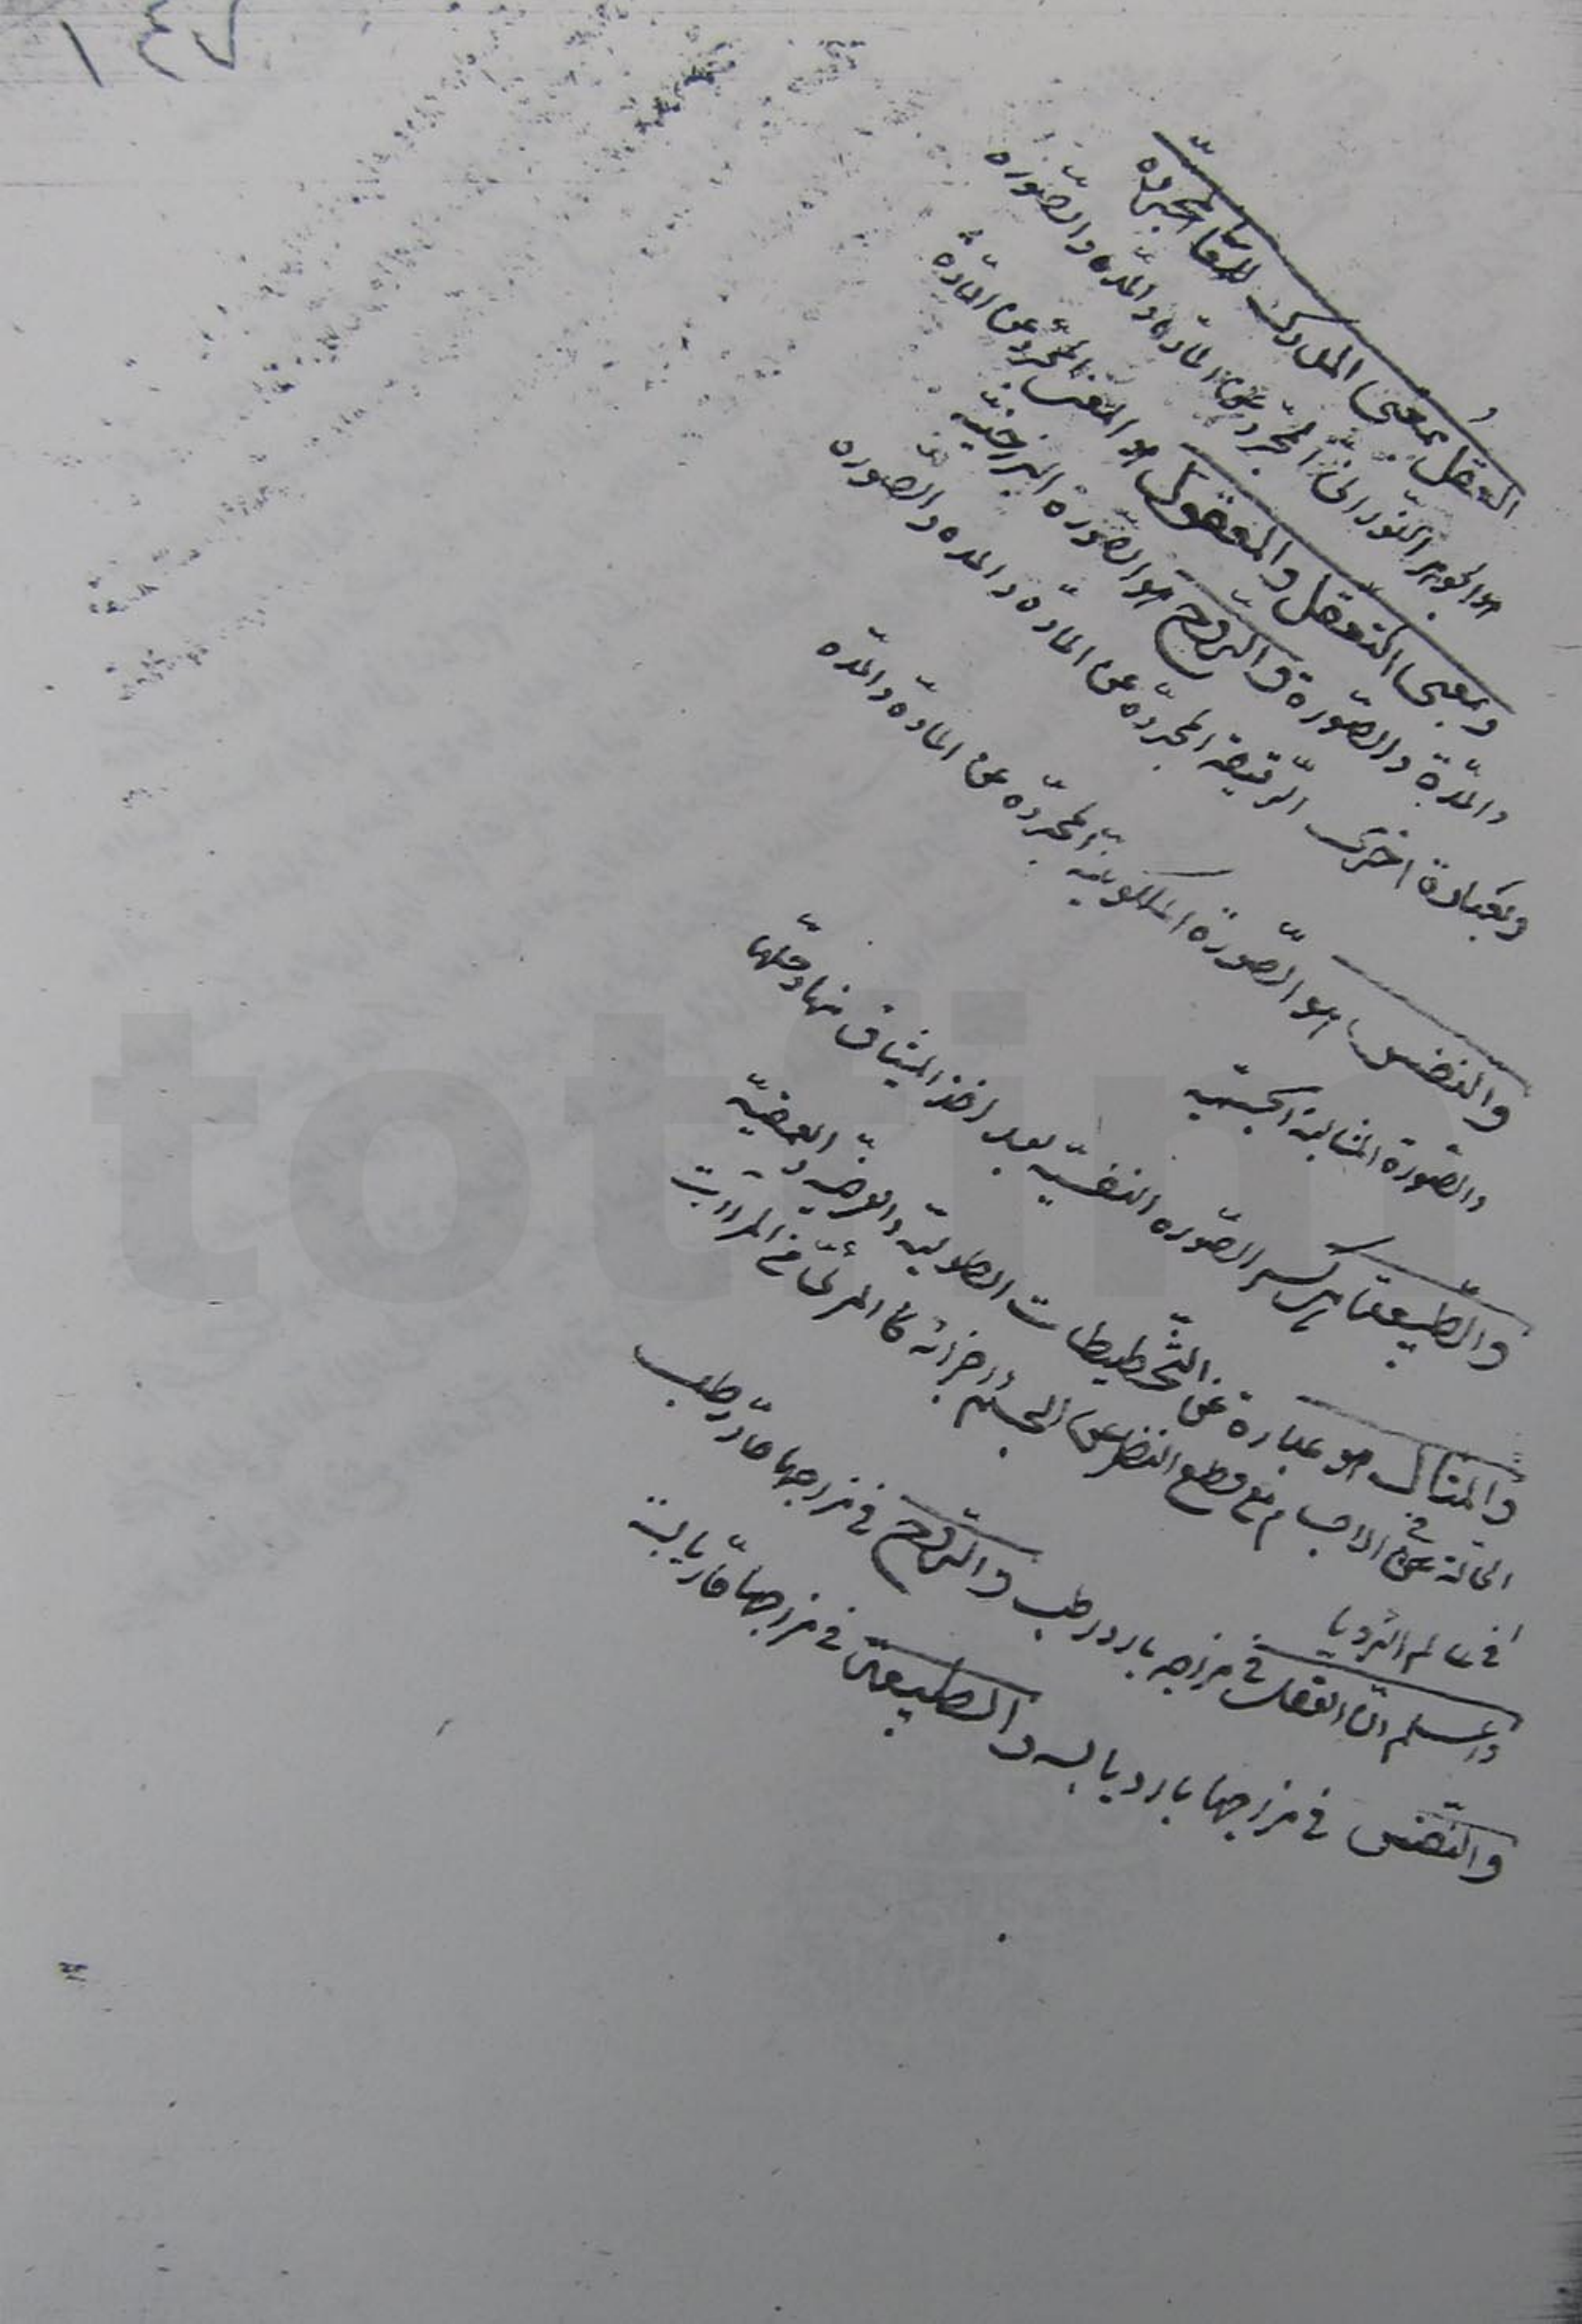 ١٤٧
العقل بمعنى المدرك للمعا المجرده
هو الجوهر النورانى المجرد عن المادّه والمدّه والصّوره
وبمعنى التعقل والمعقول هو المعنى المجرد عن المادّة
والمدّة والصّورة والرّوح هو الصّورة البرزخيّه
وبعبارة اخرى الرّقيقة المجرّده عن المادّه والمده والصوره
والنفس هو الصّورة الملكوتيّة المجرّده عن المادّه والمدّه
والصّورة المثالية الجسميّه
والطّبيعة كسر الصّوره النفسيّه بعد اخذ الميثاق منها وحلّها
والمثال هو عبارة عن التّخطيطات الطوليّه والعرضيّه والعمقيّه
الحالة فى الاجسام مع قطع النظر عن الجسم واجزائه كالمرئى فى المرآت
او فى عالم الرّويا
واعلم انّ العقل فى مزاجه بارد رطب والرّوح فى مزاجها حارّ رطب
والنّفس فى مزاجها بارد يابسه والطبيعة فى مزاجها حارّ يابسة
totfim